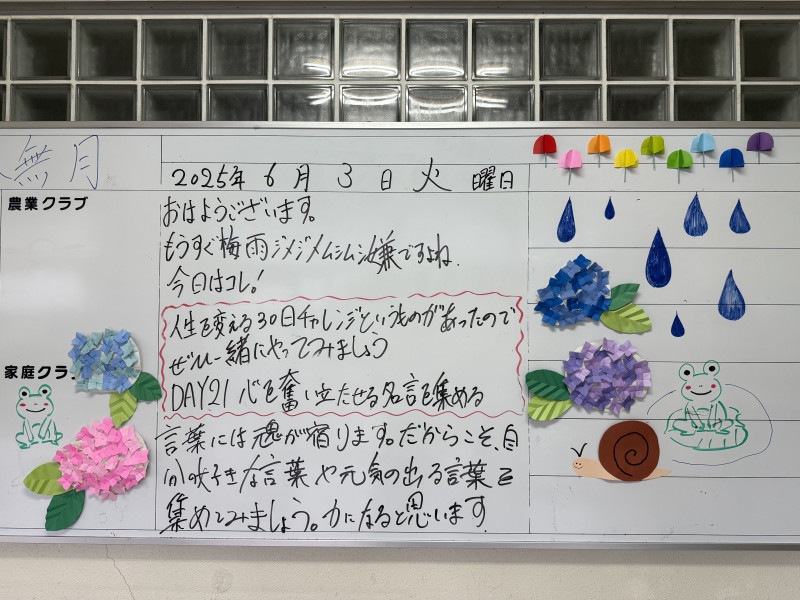 無月
2025年 6月 3日 火曜日
農業クラブ
おはようございます。
もうすぐ梅雨ジメジメムシムシ嫌ですよね。
今日はコレ!
人生を変える30日チャレンジというものがあったので
ぜひ一緒にやってみましょう
DAY21 心を奮い立たせる名言を集める
家庭クラ
言葉には魂が宿ります。だからこそ、自
分の好きな言葉や元気の出る言葉を
集めてみましょう。力になると思います